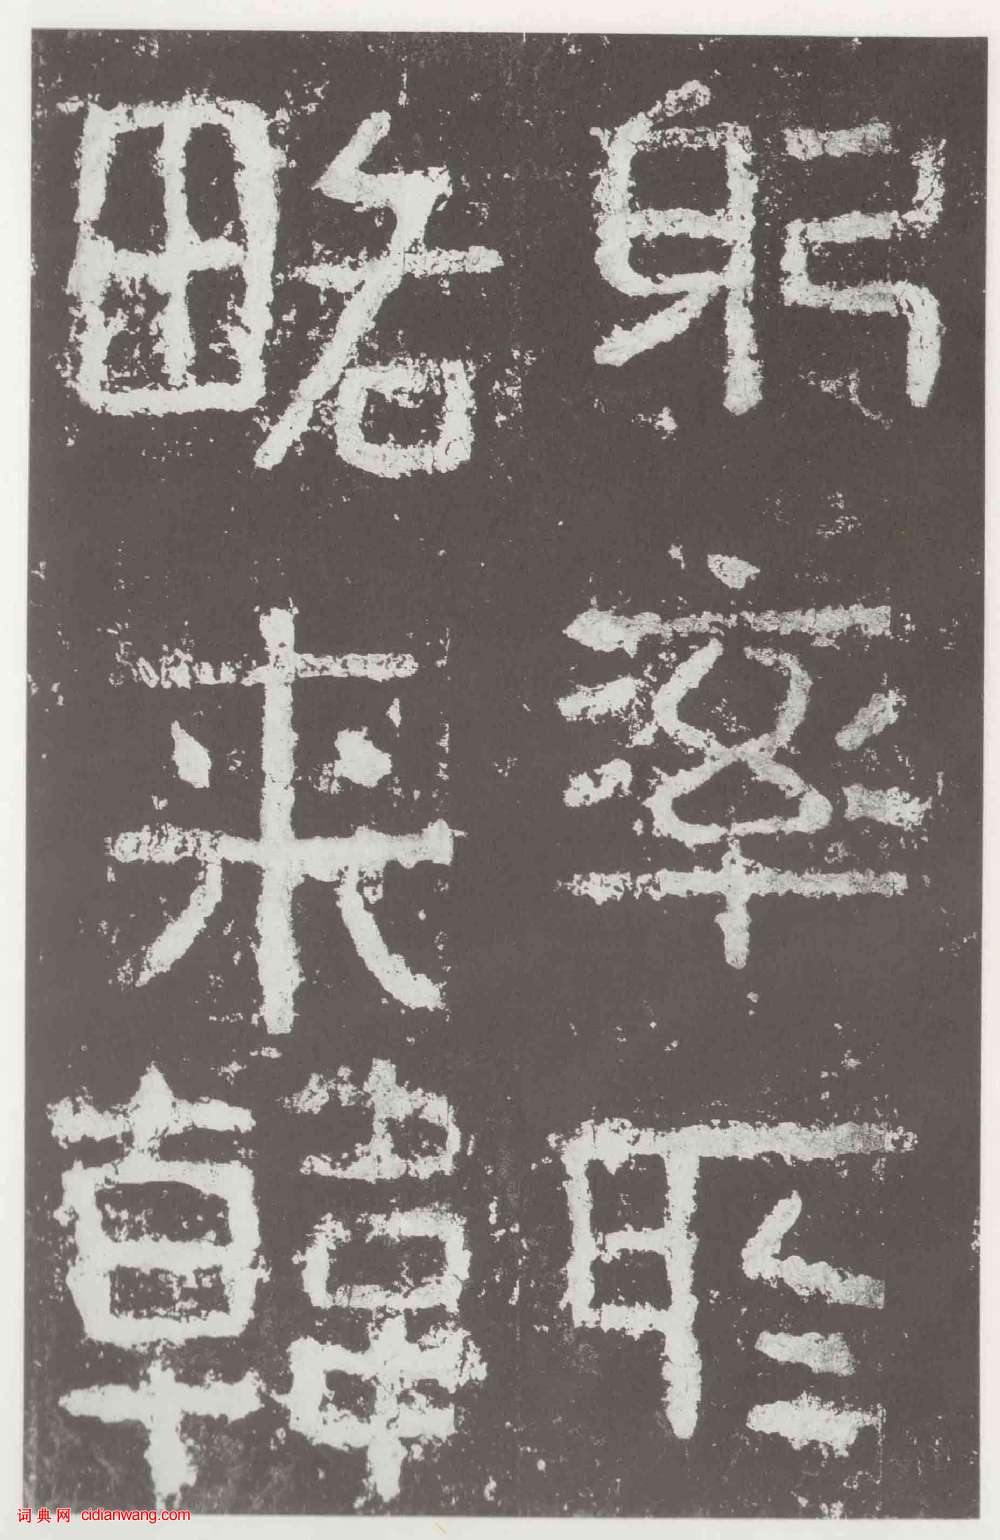 躬率所
略来韓
词典网 cidianwang.com